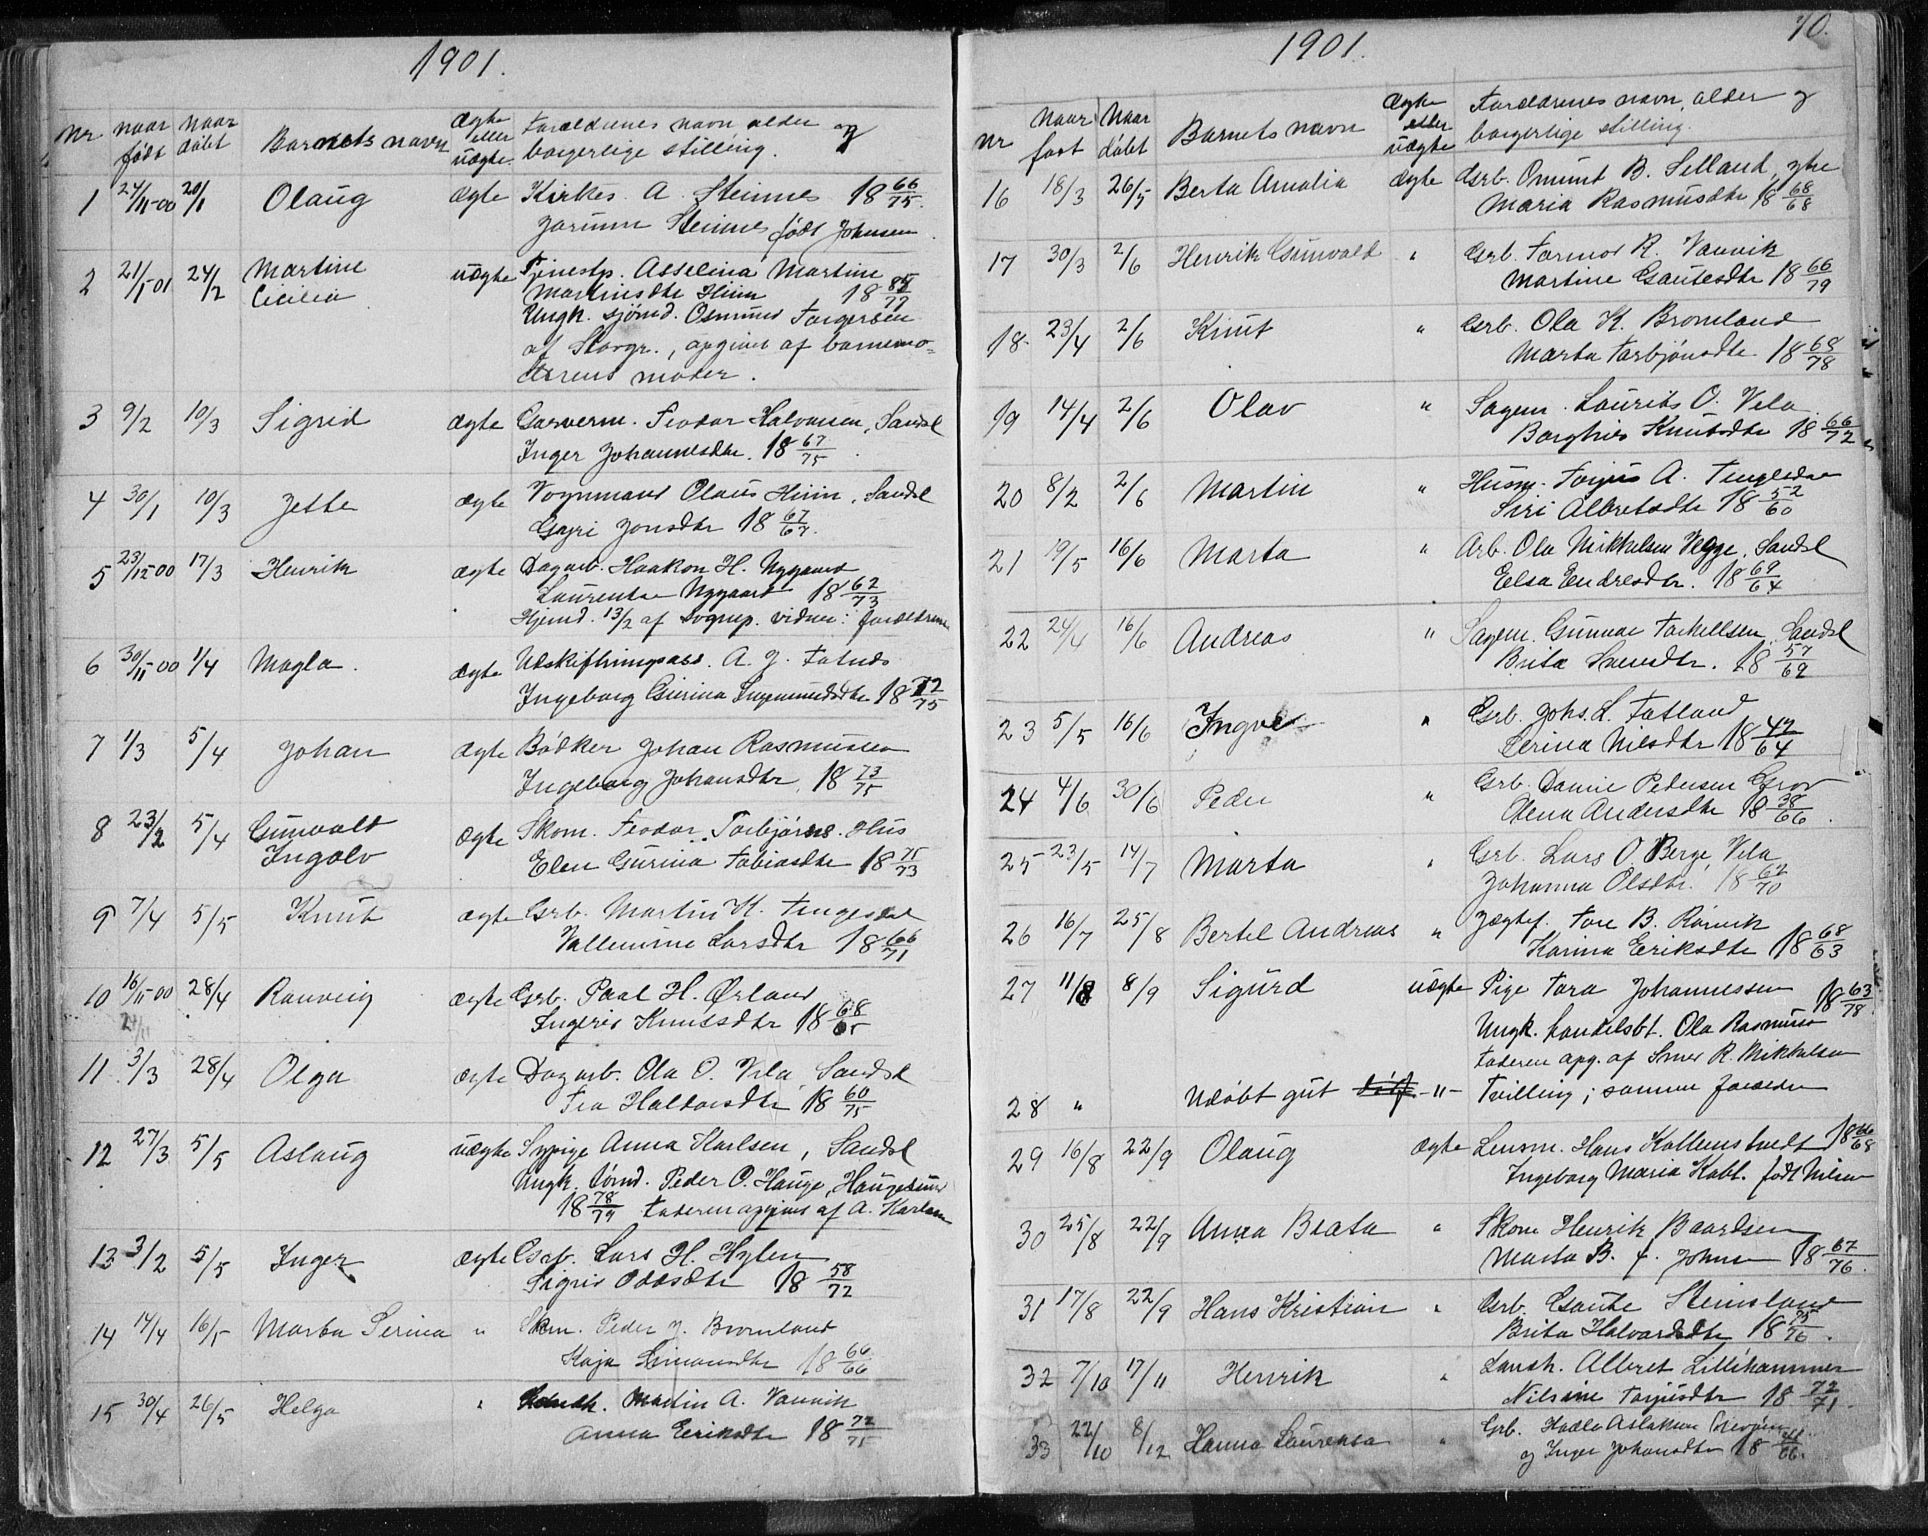 1901.
Nr naar født Naar døbt Barnets navn ægte eller uægte Forældrenes navn alder og borgerlige stilling.
1 24/11-00 20/1 Olaug ægte Kirkes. A. Steinnes 18 66/75.
Jorunn Steinnes født Johnsen.
2 21/1-01 24/2 Martine Cicilia uægte Tjenestp. Asselina Martine
Martinsdtr Hiim 18 77
Ungk. sjømd. Osmund Torgersen
af Skorgr., opgivet af barnemo-
derens moder.
3 9/2 10/3 Sigrid ægte Garverm. Teodor Halvorsen, Sandsl
Inger Johannesdtr. 18 67/75.
4 30/1 10/3 Jette ægte Vognmand Olaus Hiim, Sandsl
Guri Jonsdtr 18 67/67.
5 23/12-00 17/3 Henrik ægte Dagarb. Haakon H. Nygaard
Laurentse Nygaard 18 62/73
Hjemd. 13/2 af Sognep. vidner: forældrene
6 30/11-00 1/4 Magla. ægte Udskiftningsass. A. J. Fatnes
Ingeborg Gurina Ingemundsdtr 18 72/75
7 1/3 5/4 Johan ægte Bødker Johan Rasmussen
Ingeborg Johansdtr. 18 73/75
8 23/2 5/4 Gunvald Ingolv ægte Skom. Teodor Torbjørns. Hus
Elen Gurina Tobiasdtr 18 75/73
9 7/4 5/5 Knut ægte Grb. Martin K. Tengesdal
Vallemine Larsdtr 18 66/71
10 16/11-00 28/4 Ranveig ægte Grb. Paal H. Ørland
Ingerid Knutsdtr 18 68/65
11 3/3 28/4 Olga ægte Dagarb. Ola O. Vela, Sandsl
Tea Haldorsdtr 18 60/75
12 27/3 5/5 Aslaug uægte Sypige Anna Karlsen, Sandsl
Ungk. tømd. Peder O. Hauge, Haugesund
18 78/79 Faderen opgivet af A. Karlsen
13 3/2 5/5 Inger ægte Grb. Lars H. Hylen
Sigrid Oddsdtr 18 58/72
14 14/4 16/5 Marta Serina " Skm. Peder J. Bromland
Kaja Simonsdtr 18 66/66
15 30/4 26/5 Helga " Landh. Martin A. Vanvik
Anna Eriksdtr 18 72/75
1901. 70.
Nr Naar født Naar døbt Barnets navn ægte eller uægte Forældrenes navn, alder og borgerlige stilling.
16 18/3 26/5 Berta Amalia ægte Grb. Omund B. Selland, ytre
Maria Rasmusdtr 18 68/68
17 30/3 2/6 Henrik Gunvald " Grb. Tormod R. Vanvik
Martine Gautesdtr 18 66/79
18 23/4 2/6 Knut " Grb. Ola K. Bromland
Marta Torbjönsdtr 18 68/78
19 14/4 2/6 Olav " Sagem. Laurits O. Vela
Borghild Knutsdtr 18 66/72
20 8/2 2/6 Martin " Husm. Torjus A. Tengesdal
Siri Albretsdtr 18 52/60
21 19/5 16/6 Marta " Arb. Ola Mikkelsen Vegge, Sandsl
Elsa Endresdtr. 18 69/64
22 24/4 16/6 Andreas " Sagem. Gunnar Torkellsen, Sandsl
Brita Svendsdtr. 18 57/62
23 5/5 16/6 Ingve " Grb. Johs. L. Fatland
Serina Nilsdtr 18 42/64
24 4/6 30/6 Peder " Grb. Daniel Pedersen Grov
Olena Andersdtr 18 38/66.
25 23/5 14/7 Marta " Grb. Lars O. Berge Vela
Johanna Olsdtr. 18 62/70
26 16/7 25/8 Bertel Andreas " Jægtef. Tore B. Rørvik
Karina Eriksdtr 18 68/63
27 11/8 8/9 Sigurd uægte Pige Tora Johannessen 18 63/78
Ungk. handelsbt. Ola Rasmussen
Faderen opg. af Smed R. Mikkelsen
28 " Udøbt gut -"- Tvilling; samme forældre
29 16/8 22/9 Olaug ægte Lensm. Hans Kaltenstvedt 18 66/68
Ingeborg Maria Kalt. født Nilsen
30 25/8 22/9 Anna Beata " Skom Henrik Baardsen
Marta B. f. Johns 18 67/76.
31 17/8 22/9 Hans Kristian " Grb. Gaute Steinsland
Brita Halvardsdtr 18 75/76.
32 7/10 17/11 Henrik " Landh. Albret Lillehammer
Nilsine Torjusdtr 18 72/71.
33 22/10 8/12 Hanna Laurensa " Grb. Hadle Aslaksen
og Inger Johansdtr 18 66.